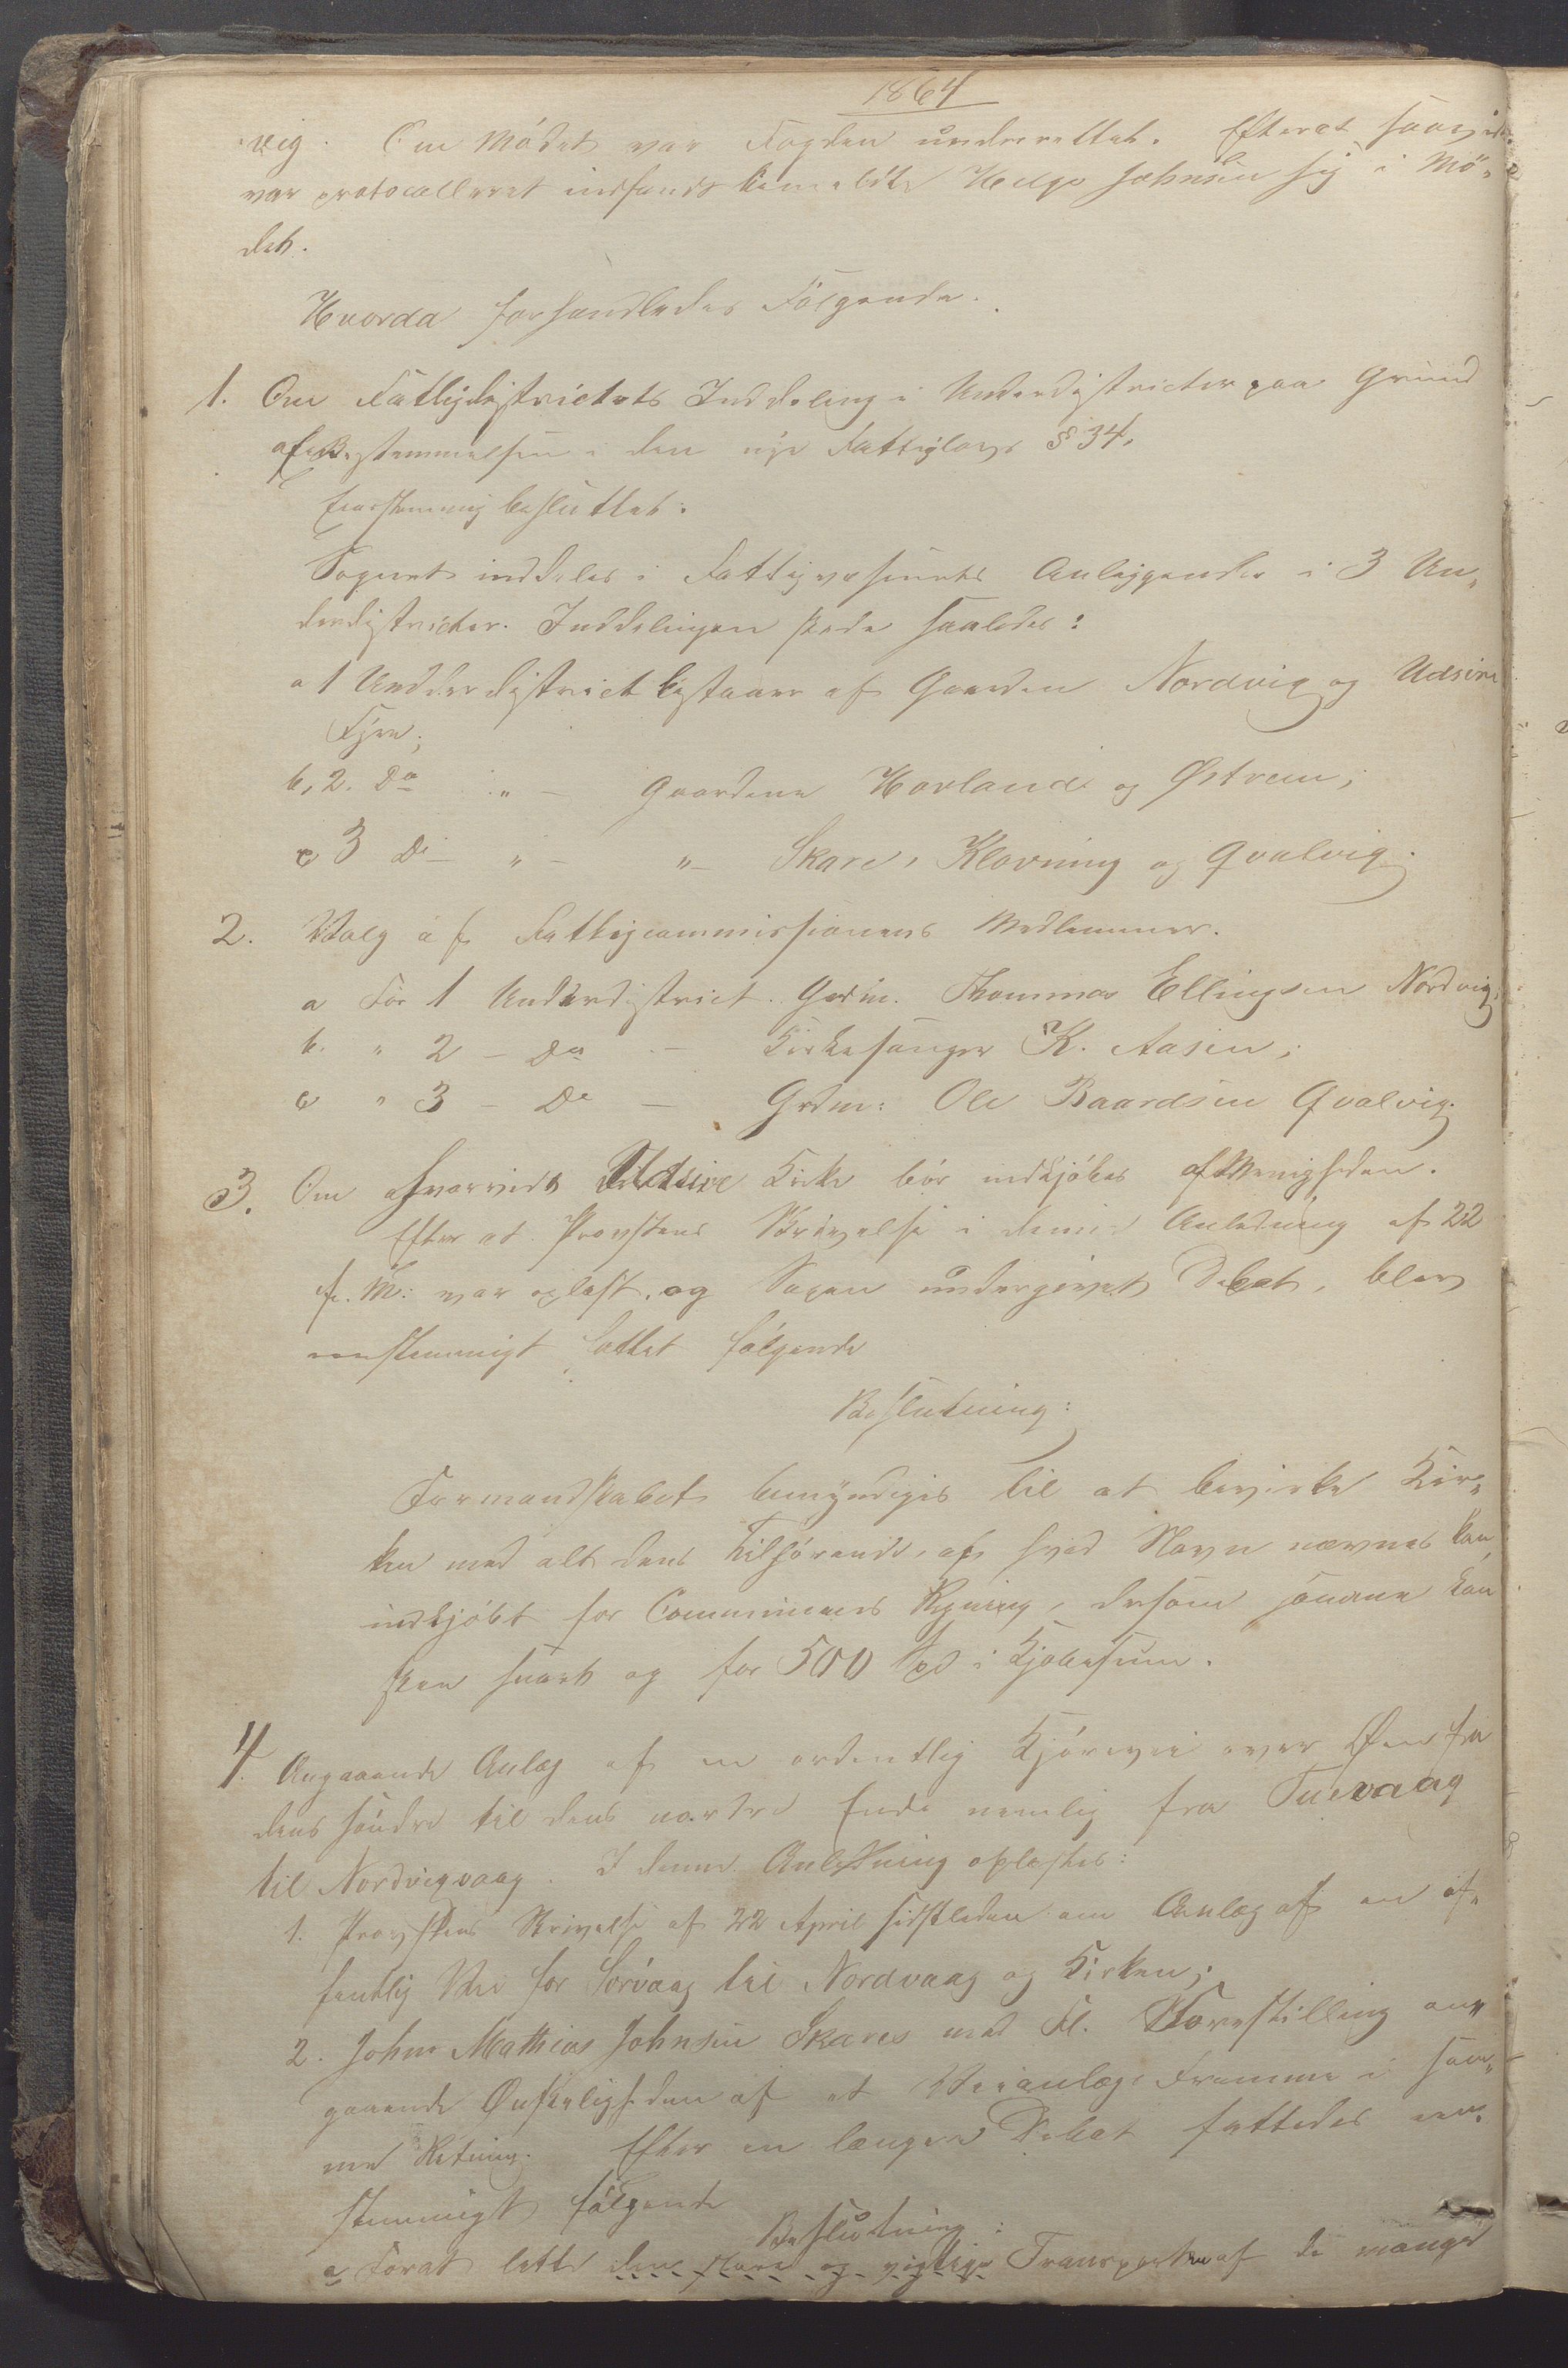 1864
vig. Om Mödet var Fogden underrettet. Efterat saavidt
var protocolleret indfandt bemeldte Helge Johnsen sig i Mö-
det.
Hvorda forhandledes Fölgende.
1. Om Fattigdistrictets Inddeling i Underdistricter paa Grund
af Bestemmelsen i den nye Fattiglovs § 34.
Eenstemmig besluttet:
Sognet inddeles i Fattigvæsenets Anliggender i 3 Un-
derdistricter. Inddelingen skede saaledes:
a 1 Underdistrict bestaaer af Gaarden Nordvig og Udsire
Fyre;
b, 2. Do " - Gaardene Hovland og Østrem;
c 3 Do - " - " - Skare, Klovning og Qvalvig.
2. Valg af Fattigcommissionens Medlemmer.
a For 1 Underdistrict. Grdm. Thommas Ellingsen Nordvig,
b. " 2 - Do - Kirkesanger K. Aasen;
c " 3 - Do - Grdm: Ole Baardsen Qvalvig.
3. Om hvorvidt Udsire Kirke bör indkjöbes af Menigheden.
Efter at Provstens Skrivelse i denne Anledning af 22
f. M: var oplæst, og Sagen undergivet Debat, blev
eenstemmigt fattet fölgende
Beslutning:
Formandskabet bemyndiges til at bevirke Kir-
ken med alt dens Tilhörende, af hvad Navn nævnes kan,
indkjöbt for Communens Regning, dersom saadant kan
skee snart og for 500 Spd i Kjöbesum.
4. Angaaende Anlæg af en ordentlig Kjörevei over Øen fra
dens söndre til dens nordre Ende nemlig fra Tuevaag
til Nordvigvaag. I denne Anledning oplæstes:
1. Provstens Skrivelse af 22 April sidstleden om Anlæg af en of-
fentlig Vei for Sörvaag til Nordvaag og Kirken;
2. John Mathias Johnsen Skares med Fl. Forestilling an-
gaaende Önskeligheden af et Veianlægs Fremme i sam-
me Retning. Efter en længere Debat fattedes een-
stemmigt fölgende
Beslutning:
a Forat lette den store og vigtige Transporten af de mange